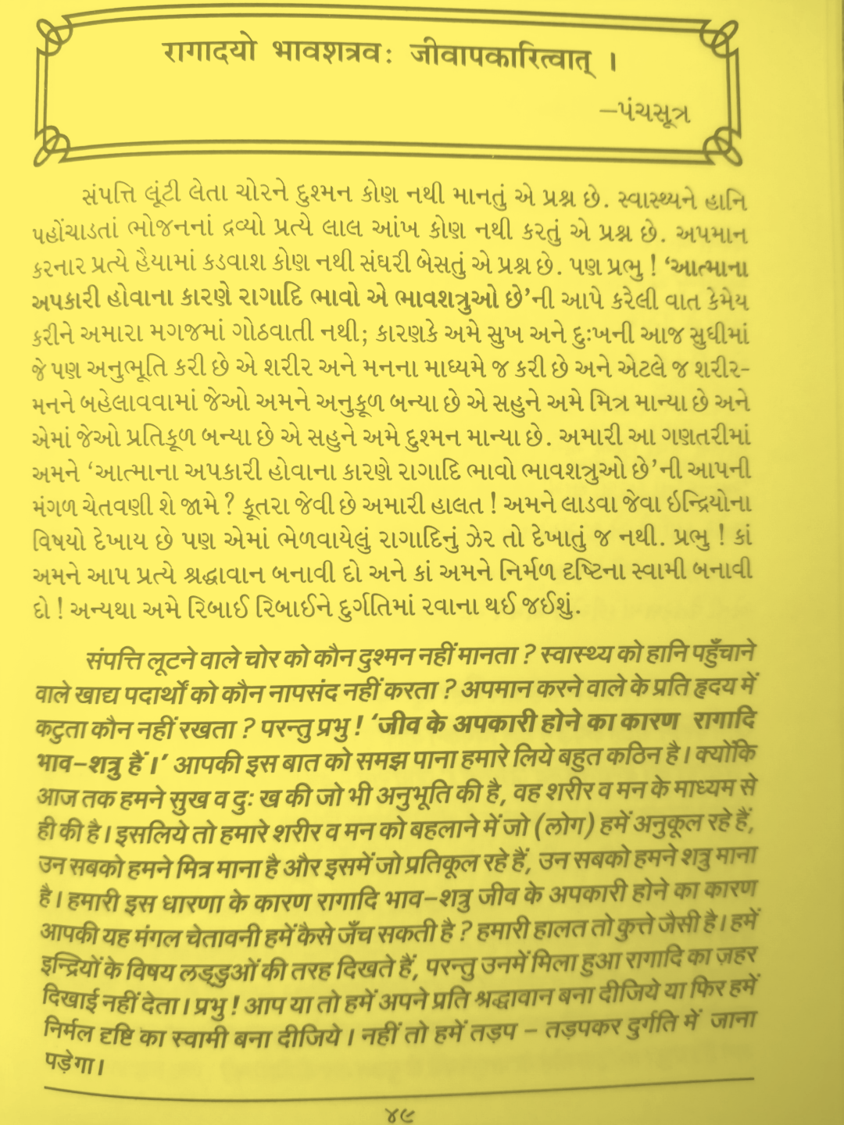 रागादयो भावशत्रवः जीवापकारित्वात् ।
–પંચસૂત્ર
સંપત્તિ લૂંટી લેતા ચોરને દુશ્મન કોણ નથી માનતું એ પ્રશ્ન છે. સ્વાસ્થ્યને હાનિ
પહોંચાડતાં ભોજનનાં દ્રવ્યો પ્રત્યે લાલ આંખ કોણ નથી કરતું એ પ્રશ્ન છે. અપમાન
કરનાર પ્રત્યે હૈયામાં કડવાશ કોણ નથી સંઘરી બેસતું એ પ્રશ્ન છે. પણ પ્રભુ ! ‘આત્માના
અપકારી હોવાના કારણે રાગાદિ ભાવો એ ભાવશત્રુઓ છે’ની આપે કરેલી વાત કેમેય
કરીને અમારા મગજમાં ગોઠવાતી નથી; કારણકે અમે સુખ અને દુઃખની આજ સુધીમાં
જે પણ અનુભૂતિ કરી છે એ શરીર અને મનના માધ્યમે જ કરી છે અને એટલે જ શરીર-
મનને બહેલાવવામાં જેઓ અમને અનુકૂળ બન્યા છે એ સહુને અમે મિત્ર માન્યા છે અને
એમાં જેઓ પ્રતિકૂળ બન્યા છે એ સહુને અમે દુશ્મન માન્યા છે. અમારી આ ગણતરીમાં
અમને ‘આત્માના અપકારી હોવાના કારણે રાગાદિ ભાવો ભાવશત્રુઓ છે’ની આપની
મંગળ ચેતવણી શે જામે ? કૂતરા જેવી છે અમારી હાલત ! અમને લાડવા જેવા ઇન્દ્રિયોના
વિષયો દેખાય છે પણ એમાં ભેળવાયેલું રાગાદિનું ઝેર તો દેખાતું જ નથી. પ્રભુ ! કાં
અમને આપ પ્રત્યે શ્રદ્ધાવાન બનાવી દો અને કાં અમને નિર્મળ દૃષ્ટિના સ્વામી બનાવી
દો ! અન્યથા અમે રિબાઈ રિબાઈને દુર્ગતિમાં રવાના થઈ જઈશું.
संपत्ति लूटने वाले चोर को कौन दुश्मन नहीं मानता ? स्वास्थ्य को हानि पहुँचाने
वाले खाद्य पदार्थों को कौन नापसंद नहीं करता ? अपमान करने वाले के प्रति हृदय में
कटुता कौन नहीं रखता ? परन्तु प्रभु ! ‘जीव के अपकारी होने का कारण रागादि
भाव–शत्रु हैं ।’ आपकी इस बात को समझ पाना हमारे लिये बहुत कठिन है । क्योंकि
आज तक हमने सुख व दुः ख की जो भी अनुभूति की है, वह शरीर व मन के माध्यम से
ही की है । इसलिये तो हमारे शरीर व मन को बहलाने में जो (लोग) हमें अनुकूल रहे हैं,
उन सबको हमने मित्र माना है और इसमें जो प्रतिकूल रहे हैं, उन सबको हमने शत्रु माना
है । हमारी इस धारणा के कारण रागादि भाव–शत्रु जीव के अपकारी होने का कारण
आपकी यह मंगल चेतावनी हमें कैसे जँच सकती है ? हमारी हालत तो कुत्ते जैसी है । हमें
इन्द्रियों के विषय लड्डुओं की तरह दिखते हैं, परन्तु उनमें मिला हुआ रागादि का ज़हर
दिखाई नहीं देता । प्रभु ! आप या तो हमें अपने प्रति श्रद्धावान बना दीजिये या फिर हमें
निर्मल दृष्टि का स्वामी बना दीजिये । नहीं तो हमें तड़प – तड़पकर दुर्गति में जाना
पड़ेगा ।
૪૯